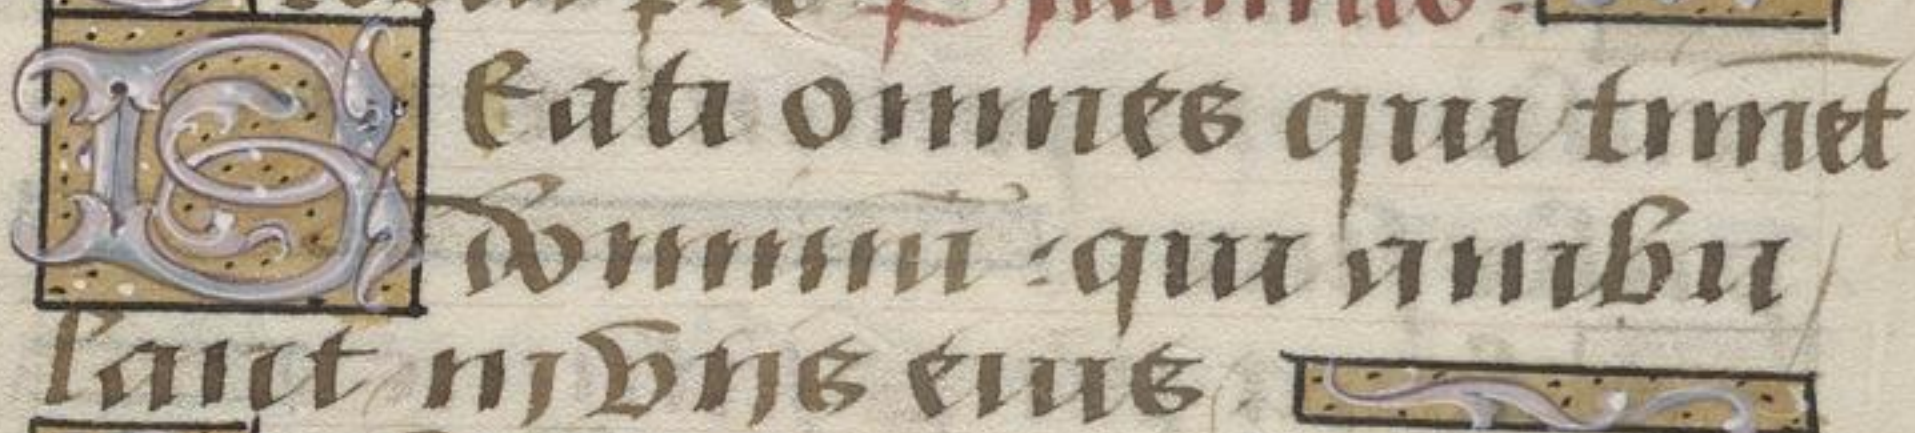 Beati omnes qui timēt
dominū : qui ambu
lant in viis eius